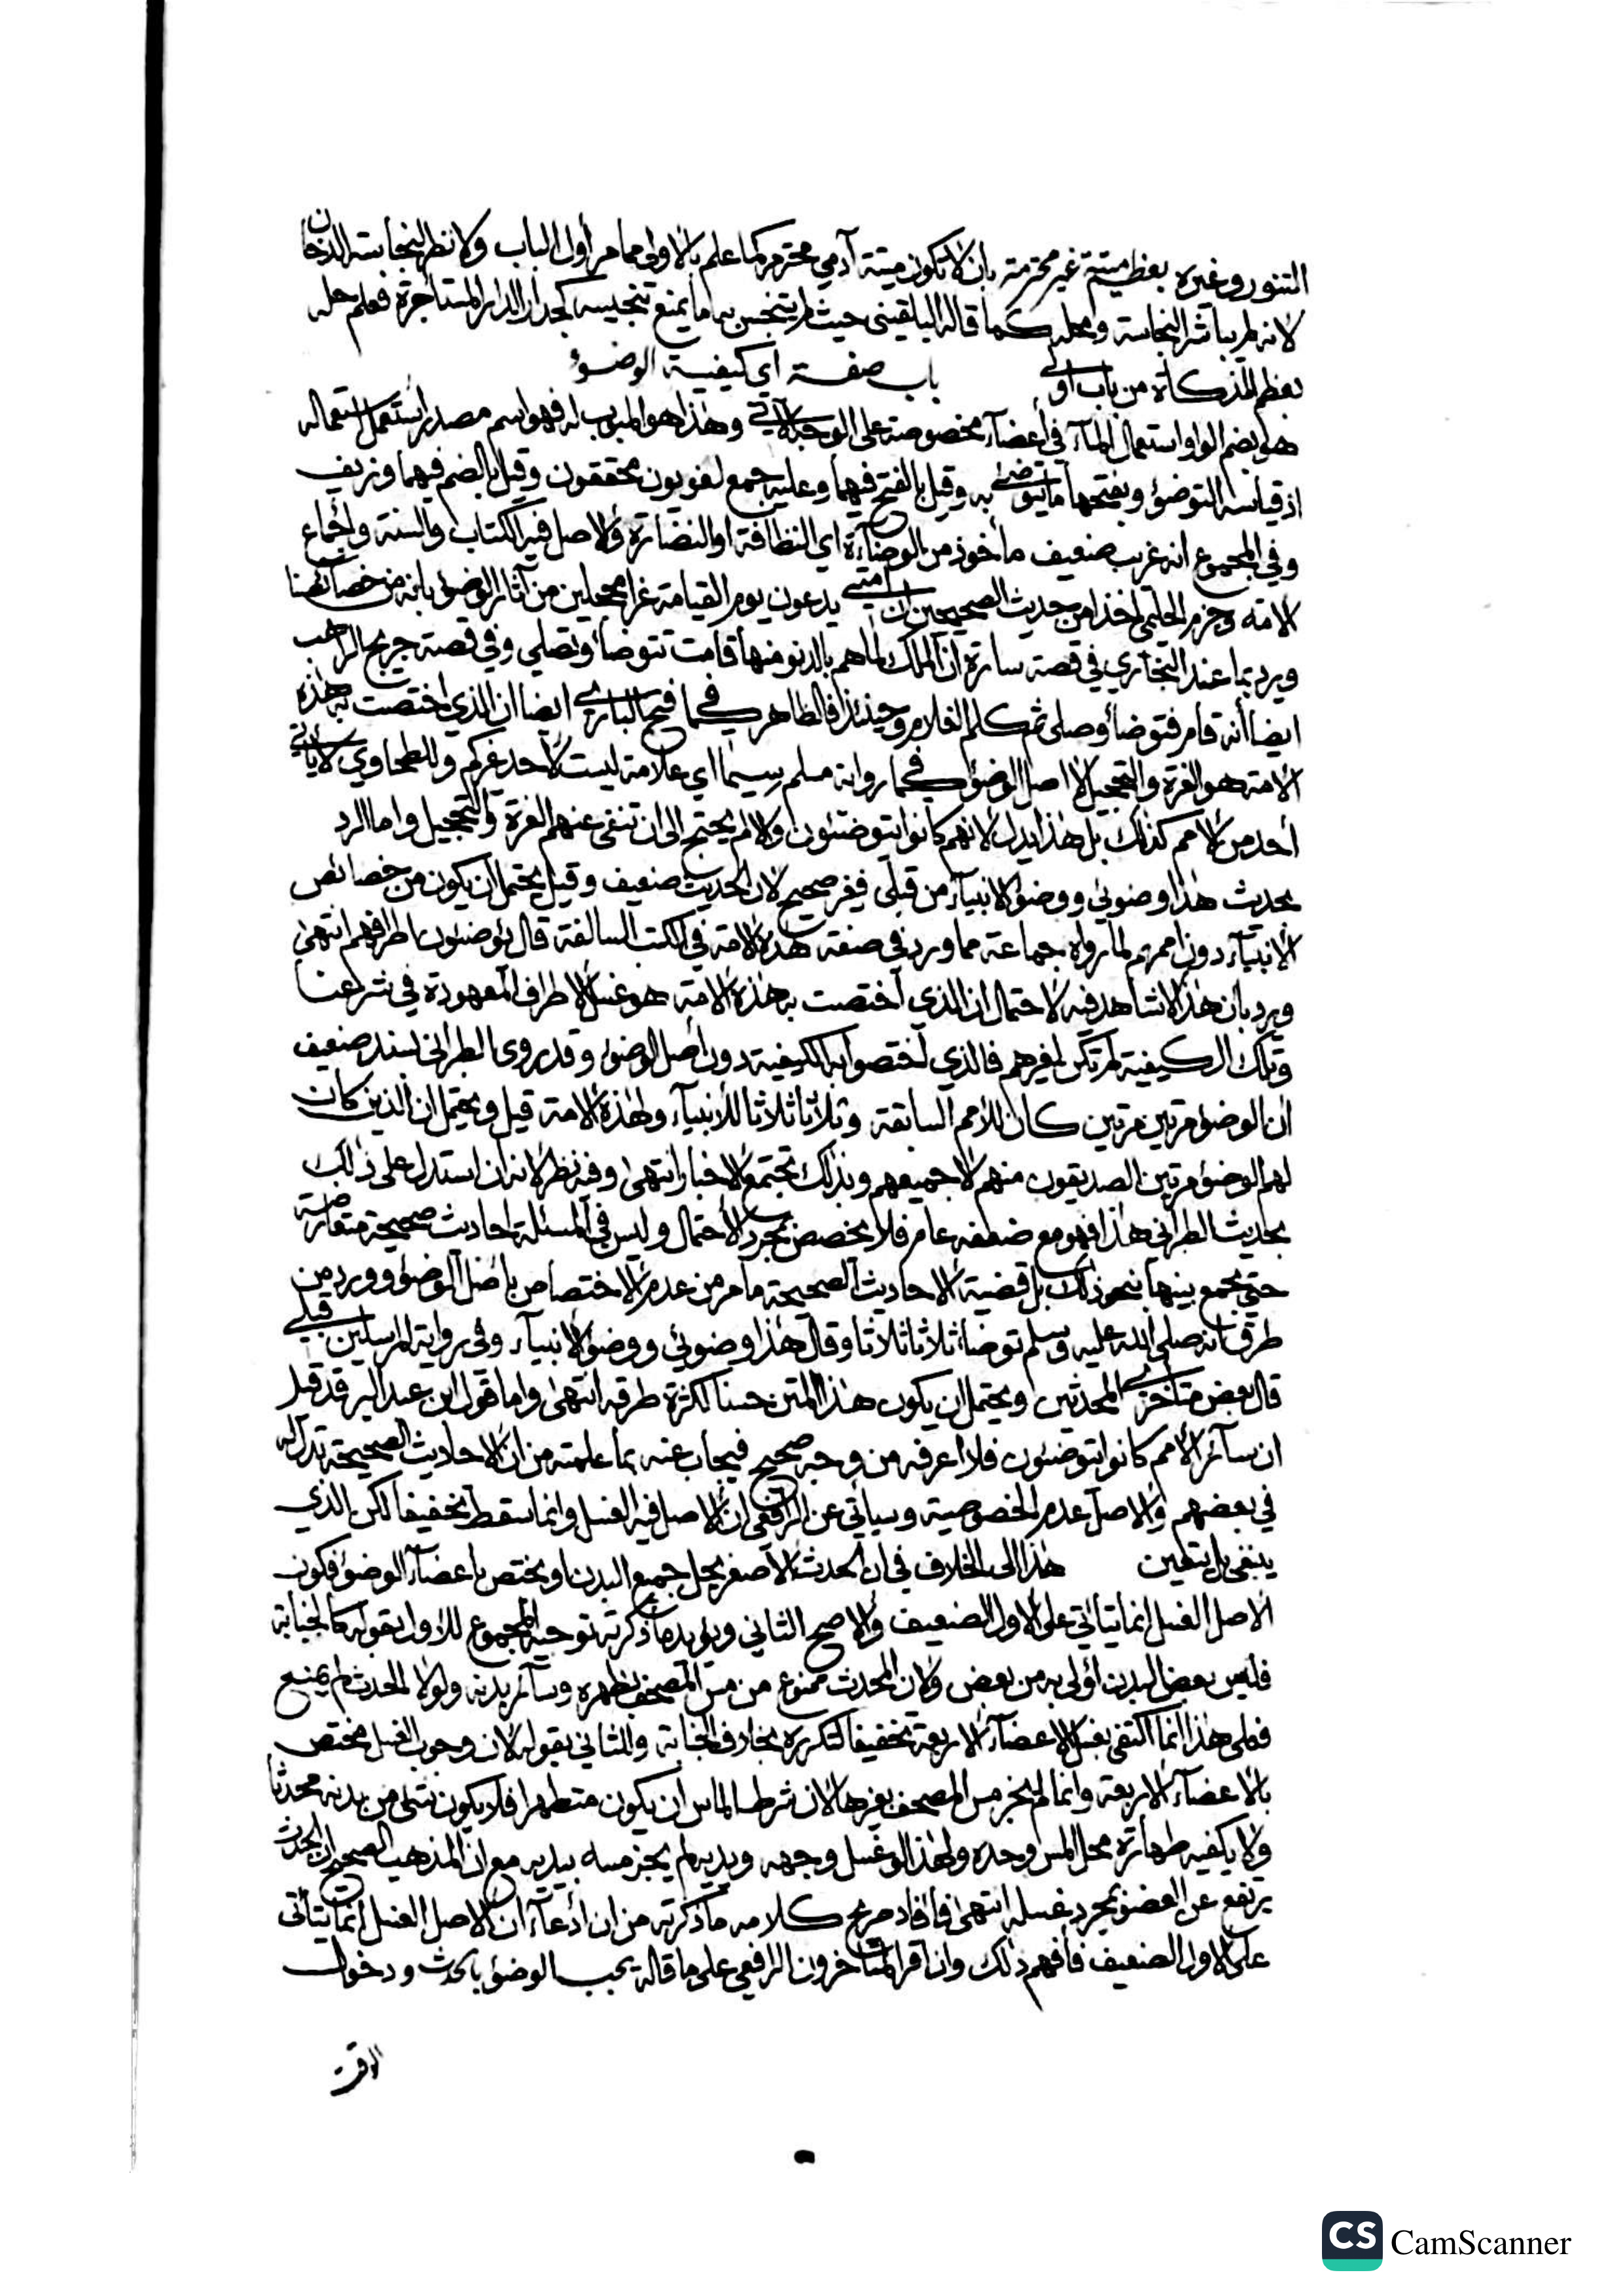 التنور وغيره بعظم ميتة غير محترمة بان لا تكون ميتة آدمي محترم كما علم بالاولى مما مر أول الباب ولا نظر لنجاسة الدخان
لانه لم يباشر النجاسة ومحله كما قاله البلقيني حيث لم يتنجس به ما يمنع تنجيسه كجدار الدار المستاجرة فعلم حله
بعظم المذكاة من باب اولى باب صفة اي كيفية الوضوء
هو بضم الواو استعمال المآء في أعضآء مخصوصة على الوجه الآتي وهذا هو المبوب له فهو اسم مصدر استعمل استعماله
اذ قياسه التوضؤ وبفتحها ما يتوضى به وقيل بالفتح فيهما وعليه جمع لغويون محققون وقيل بالضم فيهما وزيف
وفي المجموع انه غريب ضعيف مأخوذ من الوضآءة اي النظافة او النضارة والاصل فيه الكتاب والسنة واجماع
الامة وجزم الحليمي اخذا من حديث الصحيحين ان امتي يدعون يوم القيامة غرا محجلين من آثار الوضوء بانه من خصائصنا
ويرد بما عند البخاري في قصة سارة ان الملك لما هم بالدنو منها قامت تتوضأ وتصلي وفي قصة جريج الراهب
ايضا أنه قام فتوضأ وصلى ثم كلم الغلام وحينئذ فالظاهر كما في فتح الباري ايضا ان الذي اختصت به هذه
الامة هو الغرة والتحجيل لا اصل الوضوء كما في رواية مسلم سيما اي علامة ليست لاحد غيركم وللطحاوي لا ياتي
أحد من الامم كذلك بل هذا يدل لانهم كانوا يتوضئون والا لم يحتج الى ان تنفى عنهم الغرة والتحجيل واما الرد
بحديث هذا وضوئي ووضوء الانبيآء من قبلي فغير صحيح لان الحديث ضعيف وقيل يحتمل ان يكون من خصائص
الانبيآء دون اممهم لما رواه جماعة مما ورد في صفة هذه الامة في الكتب السالفة قال يوضئون اطرافهم انتهى
ويرد بان هذا لا شاهد فيه لاحتمال ان الذي اختصت به هذه الامة هو غسل الاطراف المعهودة في شرعنا
وتلك الكيفية لم تكن لغيرهم فالذي اختصوا به الكيفية دون أصل الوضوء وقد روى الطبراني بسند ضعيف
أن الوضوء مرتين مرتين كان للأمم السابقة وثلاثا ثلاثا للأنبيآء ولهذه الامة قيل ويحتمل ان الذين كان
لهم الوضوء مرتين الصديقون منهم لا جميعهم وبذلك تجتمع الاخبار انتهى وفيه نظر لانه ان استدل على ذلك
بحديث الطبراني هذا فهو مع ضعفه عام فلا يخصص بمجرد الاحتمال وليس في المسئلة احاديث صحيحة متعارضة
حتى يجمع بينها بنحو ذلك بل قضية الاحاديث الصحيحة ما مر من عدم الاختصاص باصل الوضوء وورد من
طرق انه صلى الله عليه وسلم توضأ ثلاثا ثلاثا وقال هذا وضوئي ووضوء الانبيآء وفي رواية المرسلين قبلي
قال بعض متأخري المحدثين ويحتمل ان يكون هذا المتن حسنا لكثرة طرقه انتهى واما قول ابن عبد البر قد قيل
ان سآئر الأمم كانوا يتوضئون فلا اعرفه من وجه صحيح فيجاب عنه بما علمته من ان الاحاديث الصحيحة تدل له
في بعضهم والاصل عدم الخصوصية وسيأتي عن الرافعي ان الاصل فيه الغسل وانما سقط تخفيفا لكن الذي
ينبغي بل يتعين هذا الى الخلاف في ان الحدث الاصغر يحل جميع البدن او يختص باعضآء الوضوء فكون
الاصل الغسل انما يتاتي على الاول الضعيف والاصح الثاني ويؤيد ما ذكرته توجيه المجموع للأول بقوله كالجنابة
فليس بعض البدن أولى به من بعض ولان المحدث ممنوع من مس المصحف بظهره وسآئر بدنه ولولا الحدث لم يمنع
فعلى هذا انما اكتفي بغسل الاعضآء الاربعة تخفيفا لتكرره بخلاف الجنابة والثاني بقوله لان وجوب الغسل مختص
بالاعضآء الاربعة وانما لم يجز مس المصحف بغيرها لان شرط الماس ان يكون متطهرا فلا يكون شئ من بدنه محدثا
ولا يكفيه طهارة محل المس وحده ولهذا لو غسل وجهه ويديه لم يجز مسه بيديه مع ان المذهب الصحيح ان الحدث
يرتفع عن العضو بمجرد غسله انتهى فافاد صريح كلامه ما ذكرته من ان ادعآء ان الاصل الغسل انما يتأتى
على الاول الضعيف فافهم ذلك وان اقر المتأخرون الرافعي على ما قاله يجب الوضوء بالحدث ودخول
الوقت
CS CamScanner